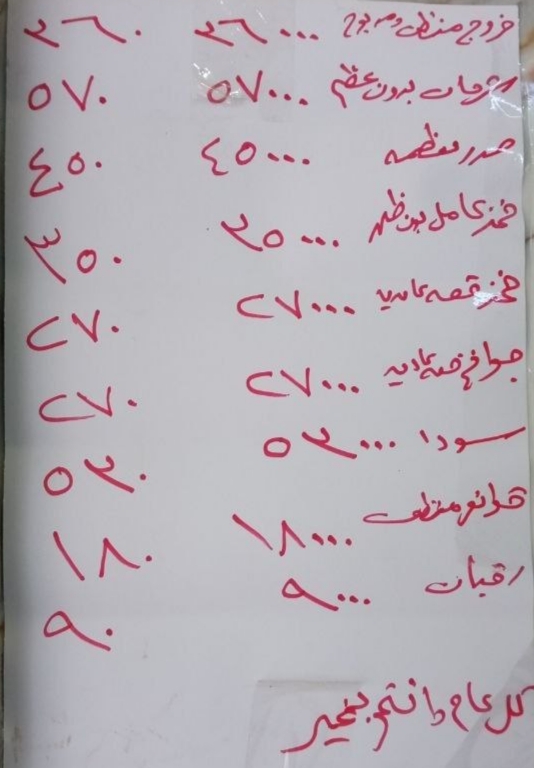 فروج منظف ومذبوح ٢٦٠٠٠ ٢٦٠
شرحات بدون عظم ٥٧٠٠٠ ٥٧٠
صدر معظمه ٤٥٠٠٠ ٤٥٠
فخذ كامل بدون ظهر ٣٥٠٠٠ ٣٥٠
فخذ قصه عاديه ٢٧٠٠٠ ٢٧٠
جوانح قصه عاديه ٢٧٠٠٠ ٢٧٠
سودا ٥٣٠٠٠ ٥٣٠
قوانص منظف ١٨٠٠٠ ١٨٠
رقبات ٩٠٠٠ ٩٠
كل عام وانتم بخير